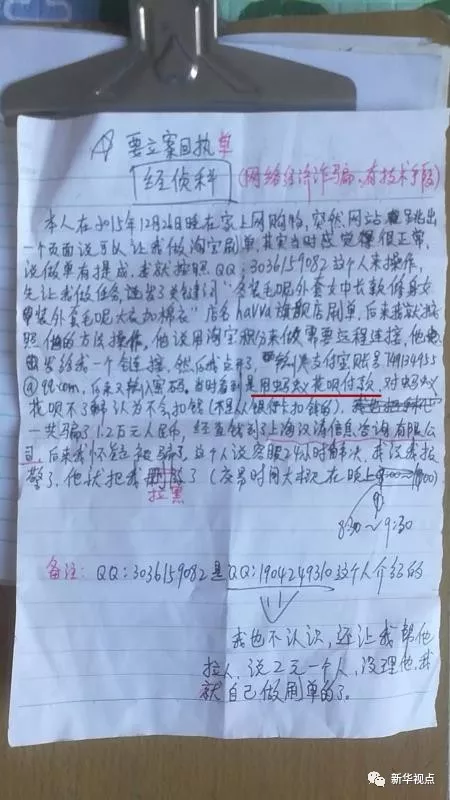 要立案回执单
经侦科
(网络经济诈骗,有技术手段)
本人在2015年12月26日晚在家上网购物,突然网站跳出
一个页面说可以让我做淘宝刷单,其实当时感觉得很正常,
说做单有提成,我就按照QQ:3036159082这个人来操作,
先让我做任务,关键词"冬装毛呢外套女中长款修身女
装外套毛呢大衣加棉衣"店名haivva旗舰店刷单,后来我就按
照他的方法操作,他说用淘宝积分来做需要远程连接,他
发给我一个链接,然后我点开了,支付宝账号749134955
@qq.com,后来又输入密码,当时看到是用蚂蚁花呗付款,对蚂蚁
花呗不了解认为不会扣钱(不是从银行卡扣钱的),
一共骗了1.2万元人民币,钱到了上海汉涛信息咨询有限公
司,后来我怀疑被骗了,这个人说客服24小时解决,我说我报
警了,他就把我删除了(交易时间大概在晚上
拉黑
8:30~9:30
备注:QQ:3036159082是QQ:1904249310这个人介绍的
我也不认识,还让我帮他
拉人,说2元一个人,没理他,我
就自己做刷单的了。
新华视点